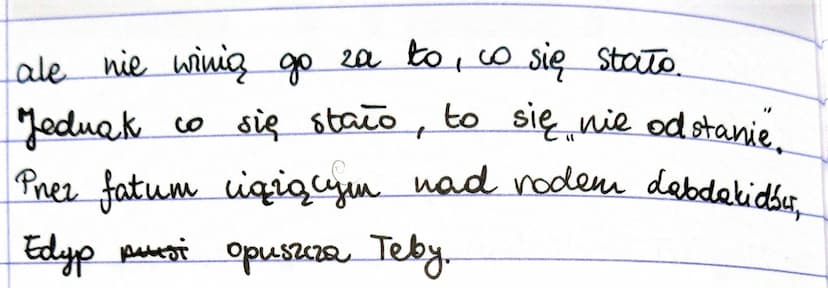 ale nie winią go za to, co się stało.
Jednak co się stało, to się „nie odstanie”.
Przez fatum ciążącym nad rodem Labdakidów,
Edyp musi opuszcza Teby.